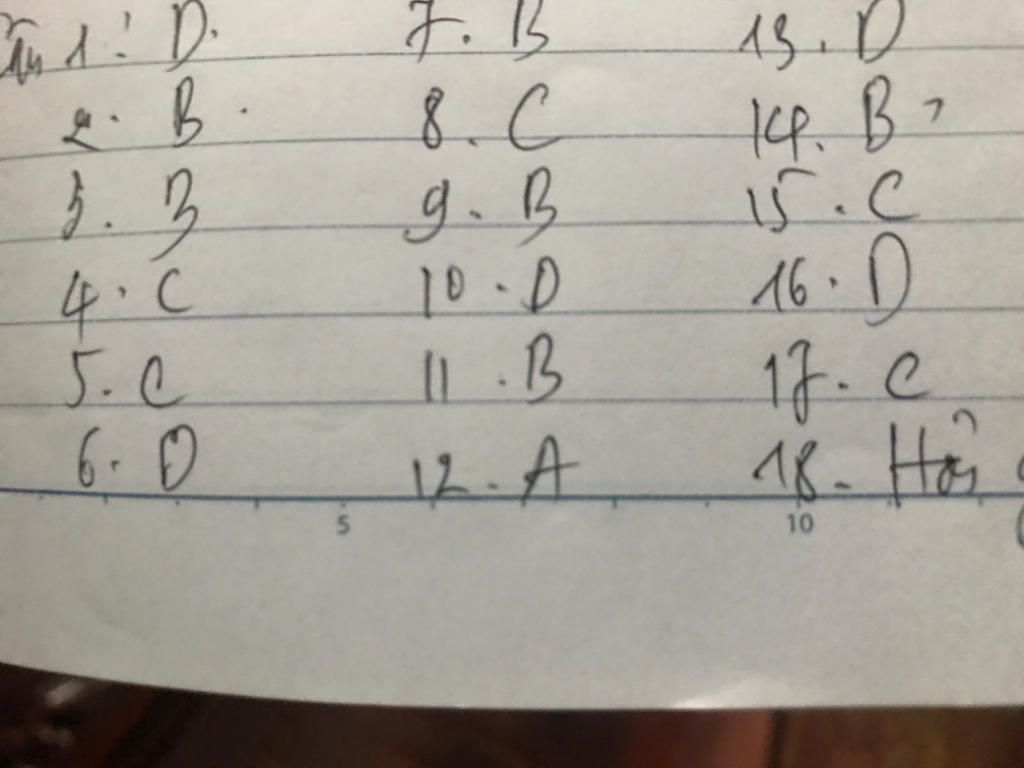 1: D. 7. B 13. D
2. B. 8. C 14. B?
3. B 9. B 15. C
4. C 10. D 16. D
5. C 11. B 17. C
6. D 12. A 18. Hỏi
5 10